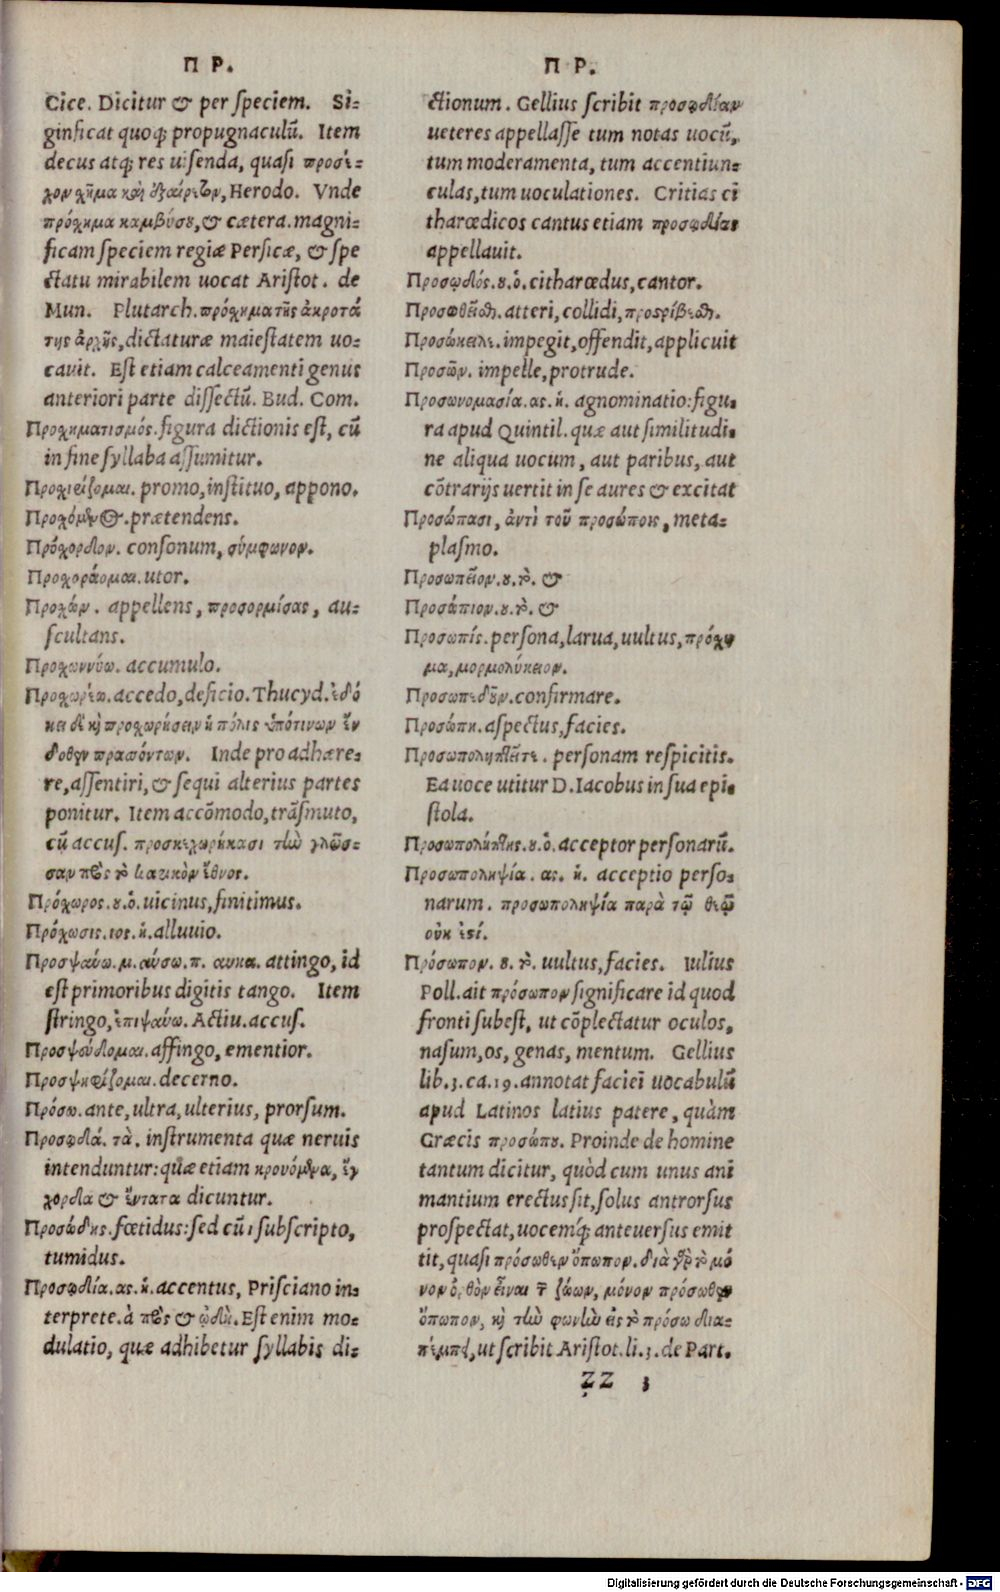 Π Ρ.
Cice. Dicitur & per speciem. Si-
ginficat quoq; propugnaculũ. Item
decus atq; res uisenda, quasi προσί-
χον χῆμα καὶ ἐξαίρετον, Herodo. Vnde
πρόχημα καμβύσου, & cætera. magni-
ficam speciem regiæ Persicæ, & spe
ctatu mirabilem uocat Aristot. de
Mun. Plutarch. πρόχημα τῆς ἀκροτά
της ἀρχῆς, dictaturæ maiestatem uo-
cauit. Est etiam calceamenti genus
anteriori parte dissectũ. Bud. Com.
Προχηματισμός. figura dictionis est, cũ
in fine syllaba assumitur.
Προχιείζομαι. promo, instituo, appono.
Προχόμενος. prætendens.
Πρόχορδον. consonum, σύμφωνον.
Προχοράομαι. utor.
Προχών. appellens, προσορμίσας, au-
scultans.
Προχωννύω. accumulo.
Προχωρέω. accedo, deficio. Thucyd. ἐδό
κει δὲ καὶ προχωρήσειν ἡ πόλις ὑπότινων ἔν
δοθεν πρασόντων. Inde pro adhære-
re, assentiri, & sequi alterius partes
ponitur. Item accõmodo, trãsmuto,
cũ accus. προσκεχωρήκασι τὴν γλῶσ-
σαν πρὸς τὸ ἰλλυρικὸν ἔθνος.
Πρόχωρος. ου. ὁ. uicinus, finitimus.
Πρόχωσις. ιος. ἡ. alluuio.
Προσψαύω. μ. αύσω. π. αυκα. attingo, id
est primoribus digitis tango. Item
stringo, ἐπιψαύω. Actiu. accus.
Προσψεύδομαι. affingo, ementior.
Προσψηφίζομαι. decerno.
Πρόσω. ante, ultra, ulterius, prorsum.
Προσῳδά. τὰ. instrumenta quæ neruis
intenduntur: quæ etiam κρουόμενα, ἔγ
χορδα & ἔντατα dicuntur.
Προσώδης. fœtidus: sed cũ ι subscripto,
tumidus.
Προσῳδία. ας. ἡ. accentus, Prisciano in-
terprete. à πρὸς & ᾠδὴ. Est enim mo-
dulatio, quæ adhibetur syllabis di-
Π Ρ.
ctionum. Gellius scribit προσῳδίαν
ueteres appellasse tum notas uocũ,
tum moderamenta, tum accentiun-
culas, tum uoculationes. Critias ci
tharœdicos cantus etiam προσῳδίας
appellauit.
Προσῳδός. ου. ὁ. citharœdus, cantor.
Προσωθεῖσθαι. atteri, collidi, προστρίβεσθαι.
Προσώκειλε. impegit, offendit, applicuit
Προσῶν. impelle, protrude.
Προσωνομασία. ας. ἡ. agnominatio: figu-
ra apud Quintil. quæ aut similitudi-
ne aliqua uocum, aut paribus, aut
cõtrarijs uertit in se aures & excitat
Προσώπασι, ἀντὶ τοῦ προσώποις, meta-
plasmo.
Προσωπεῖον. ου. τὸ. &
Προσώπιον. ου. τὸ. &
Προσωπίς. persona, larua, uultus, πρόχη
μα, μορμολύκειον.
Προσωπιδοῦν. confirmare.
Προσώπη. aspectus, facies.
Προσωποληπτεῖτε. personam respicitis.
Ea uoce utitur D. Iacobus in sua epi-
stola.
Προσωπολήπτης. ου. ὁ. acceptor personarũ.
Προσωποληψία. ας. ἡ. acceptio perso-
narum. προσωποληψία παρὰ τῷ θεῷ
οὐκ ἐστί.
Πρόσωπον. ου. τὸ. uultus, facies. Iulius
Poll. ait πρόσωπον significare id quod
fronti subest, ut cõplectatur oculos,
nasum, os, genas, mentum. Gellius
lib. 3. ca. 19. annotat faciei uocabulũ
apud Latinos latius patere, quàm
Græcis προσώπου. Proinde de homine
tantum dicitur, quòd cum unus ani
mantium erectus sit, solus antrorsus
prospectat, uocemq́; anteuersus emit
tit, quasi πρόσωθεν ὄπωπον. διὰ γὰρ τὸ μό
νον ὀρθὸν εἶναι τ῀ ζώων, μόνον πρόσωθεν
ὄπωπον, καὶ τὴν φωνὴν εἰς τὸ πρόσω δια-
πέμπει, ut scribit Aristot. li. 3. de Part.
ZZ 3
Digitalisierung gefördert durch die Deutsche Forschungsgemeinschaft - DFG